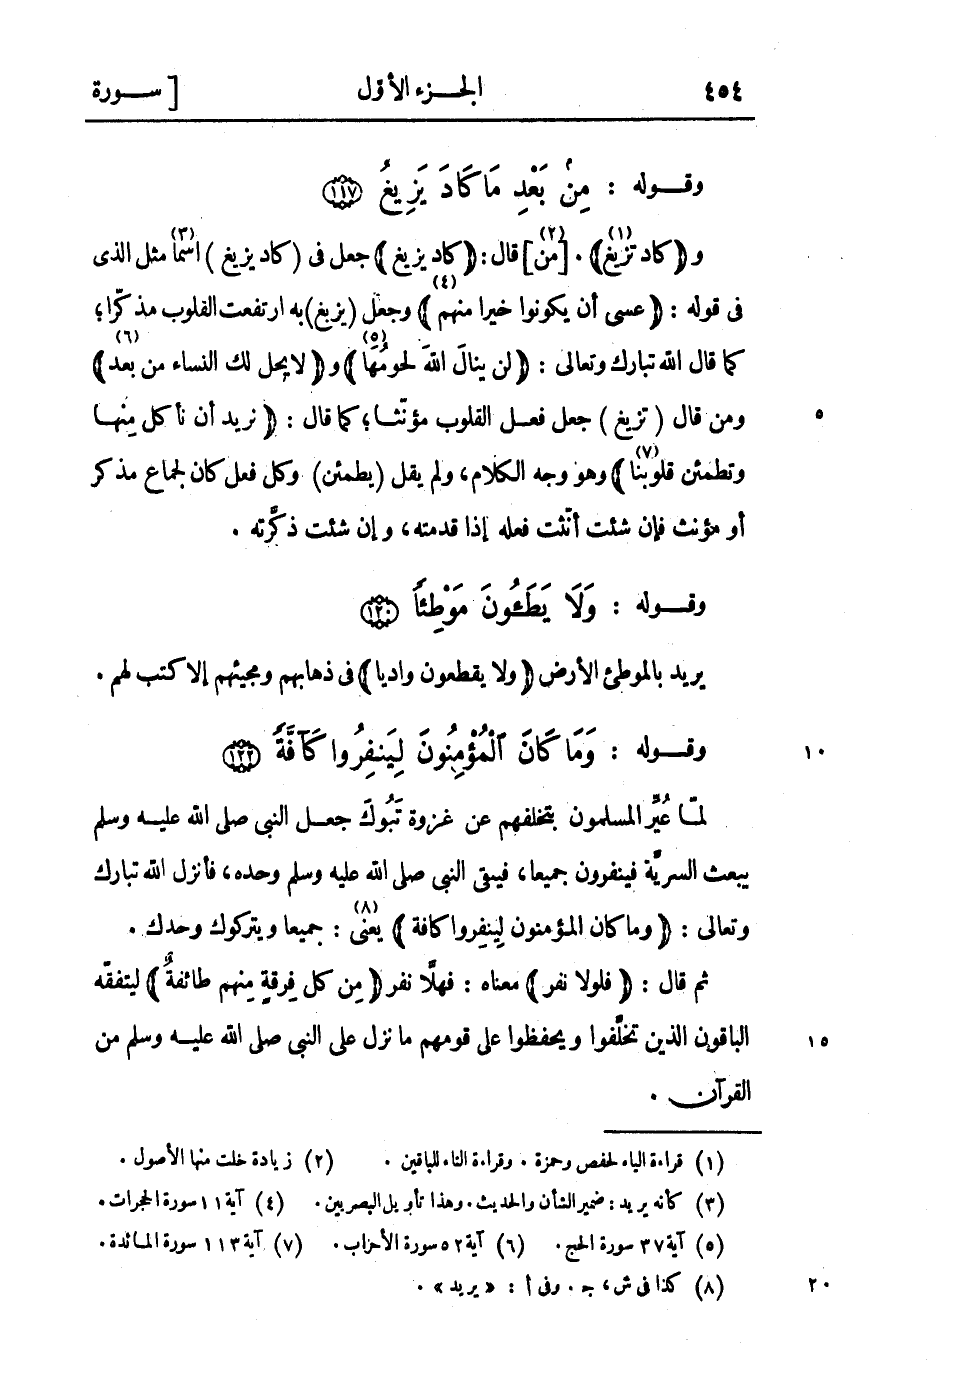 ٤٥٤ الجـــزء الأوّل [ ســـورة
وقـــوله : مِنْ بَعْدِ مَا كَادَ يَزِيغُ ١١٧
و ﴿ كاد تزيغ ﴾(١) . [ من ](٢) قال : ﴿ كاد يزيغ ﴾ جعل فى ( كاد يزيغ ) اسما(٣) مثل الذى
فى قوله : ﴿ عسى أن يكونوا خيرا منهم ﴾(٤) وجعل (يزيغ) به ارتفعت القلوب مذكّرا؛
كما قال الله تبارك وتعالى : ﴿ لن ينالَ اللهَ لحومُها ﴾(٥) و ﴿ لا يحل لك النساء من بعد ﴾(٦)
ومن قال ( تزيغ ) جعل فعــل القلوب مؤنّثــا؛ كما قال : ﴿ نريد أن نأكل مِنهــا ٥
وتطمئن قلوبنا ﴾(٧) وهو وجه الكلام، ولم يقل (يطمئن) وكل فعل كان لجماع مذكر
أو مؤنث فإن شئت أنّثت فعله إذا قدمته، وإن شئت ذكّرته .
وقـــوله : وَلَا يَطَـُٔونَ مَوْطِئًا ١٢٠
يريد بالموطئ الأرض ﴿ ولا يقطعون واديا ﴾ فى ذهابهم ومجيئهم إلا كتب لهم .
وقـــوله : وَمَا كَانَ ٱلْمُؤْمِنُونَ لِيَنفِرُوا كَآفَّةً ١٢٢ ١٠
لمّــا عُيِّر المسلمون بتخلفهم عن غزوة تَبُوكَ جعــل النبى صلى الله عليــه وسلم
يبعث السريَّة فينفرون جميعا، فيبقى النبى صلى الله عليه وسلم وحده، فأنزل الله تبارك
وتعالى : ﴿ وما كان المؤمنون لِينفِروا كافة ﴾ يعنى(٨) : جميعا ويتركوك وحدك .
ثم قال : ﴿ فلولا نفر ﴾ معناه : فهلَّا نفر ﴿ مِن كل فِرقةٍ مِنهم طائفةٌ ﴾ ليتفقّه
الباقون الذين تخلَّفوا ويحفظوا على قومهم ما نزل على النبى صلى الله عليــه وسلم من ١٥
القرآن .
(١) قراءة الياء لحفص وحمزة . وقراءة التاء للباقين . (٢) زيادة خلت منها الأصول .
(٣) كأنه يريد : ضمير الشأن والحديث . وهذا تأويل البصريين . (٤) آية ١١ سورة الحجرات .
(٥) آية ٣٧ سورة الحج . (٦) آية ٥٢ سورة الأحزاب . (٧) آية ١١٣ سورة المــائدة .
(٨) كذا فى ش ، جـ . وفى أ : « يريد » . ٢٠